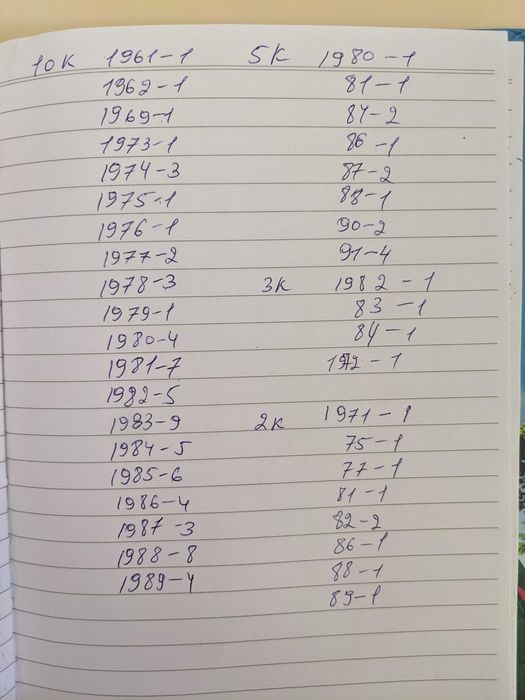 10к 1961-1
1962-1
1969-1
1973-1
1974-3
1975-1
1976-1
1977-2
1978-3
1979-1
1980-4
1981-7
1982-5
1983-9
1984-5
1985-6
1986-4
1987-3
1988-8
1989-4
5к 1980-1
81-1
84-2
86-1
87-2
88-1
90-2
91-4
3к 1982-1
83-1
84-1
1972-1
2к 1971-1
75-1
77-1
81-1
82-2
86-1
88-1
89-1